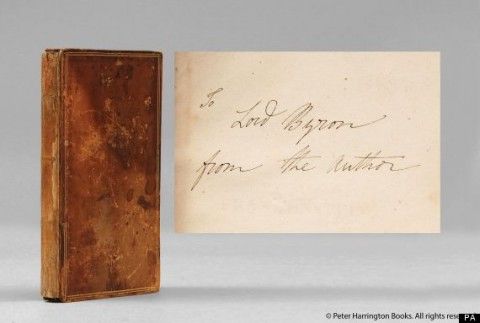 To
Lord Byron
from the author
© Peter Harrington Books. All rights rese
PA